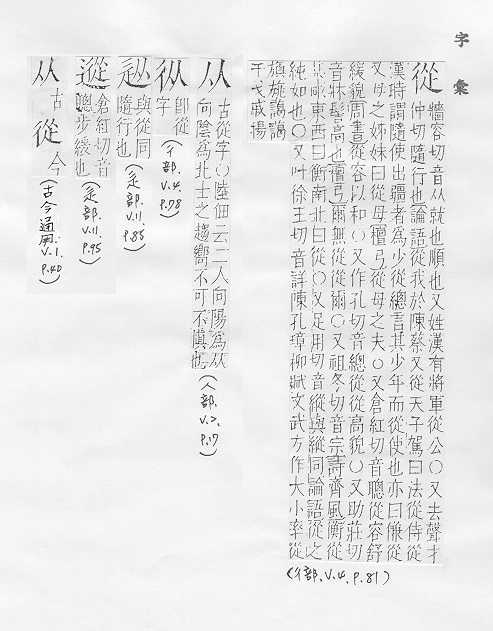 字彙
從 牆容切音从就也順也又姓漢有將軍從公〇又去聲才
仲切隨行也論語從我於陳蔡又從天子駕曰法從侍從
漢時謂隨使出疆者為少從總言其少年而從使也亦曰傔從
又母之姊妹曰從母檀弓從母之夫〇又倉紅切音聰從容舒
緩貌周書從容以和〇又作孔切音總從從高貌〇又助莊切
音牀髻高也檀弓爾無從從爾〇又祖冬切音宗詩齊風衡從
其畝東西曰衡南北曰從〇又足用切音縱與縱同論語從之
純如也〇又叶徐王切音詳陳孔璋柳賦文武方作大小率從
旗旐
干戈戚揚
(彳部.V.4.P.81)
从 古從字〇陸佃云二人向陽為从
向陰為北士之趨嚮不可不慎也
(人部.V.2.P.17)
即從
字
(彳部.V.4.P.78)
與從同
隨行也
(辵部.V.11.P.85)
倉紅切音
聰步緩也
(辵部.V.11.P.95)
从 古
從 今
(古今通用.V.1.P.40)